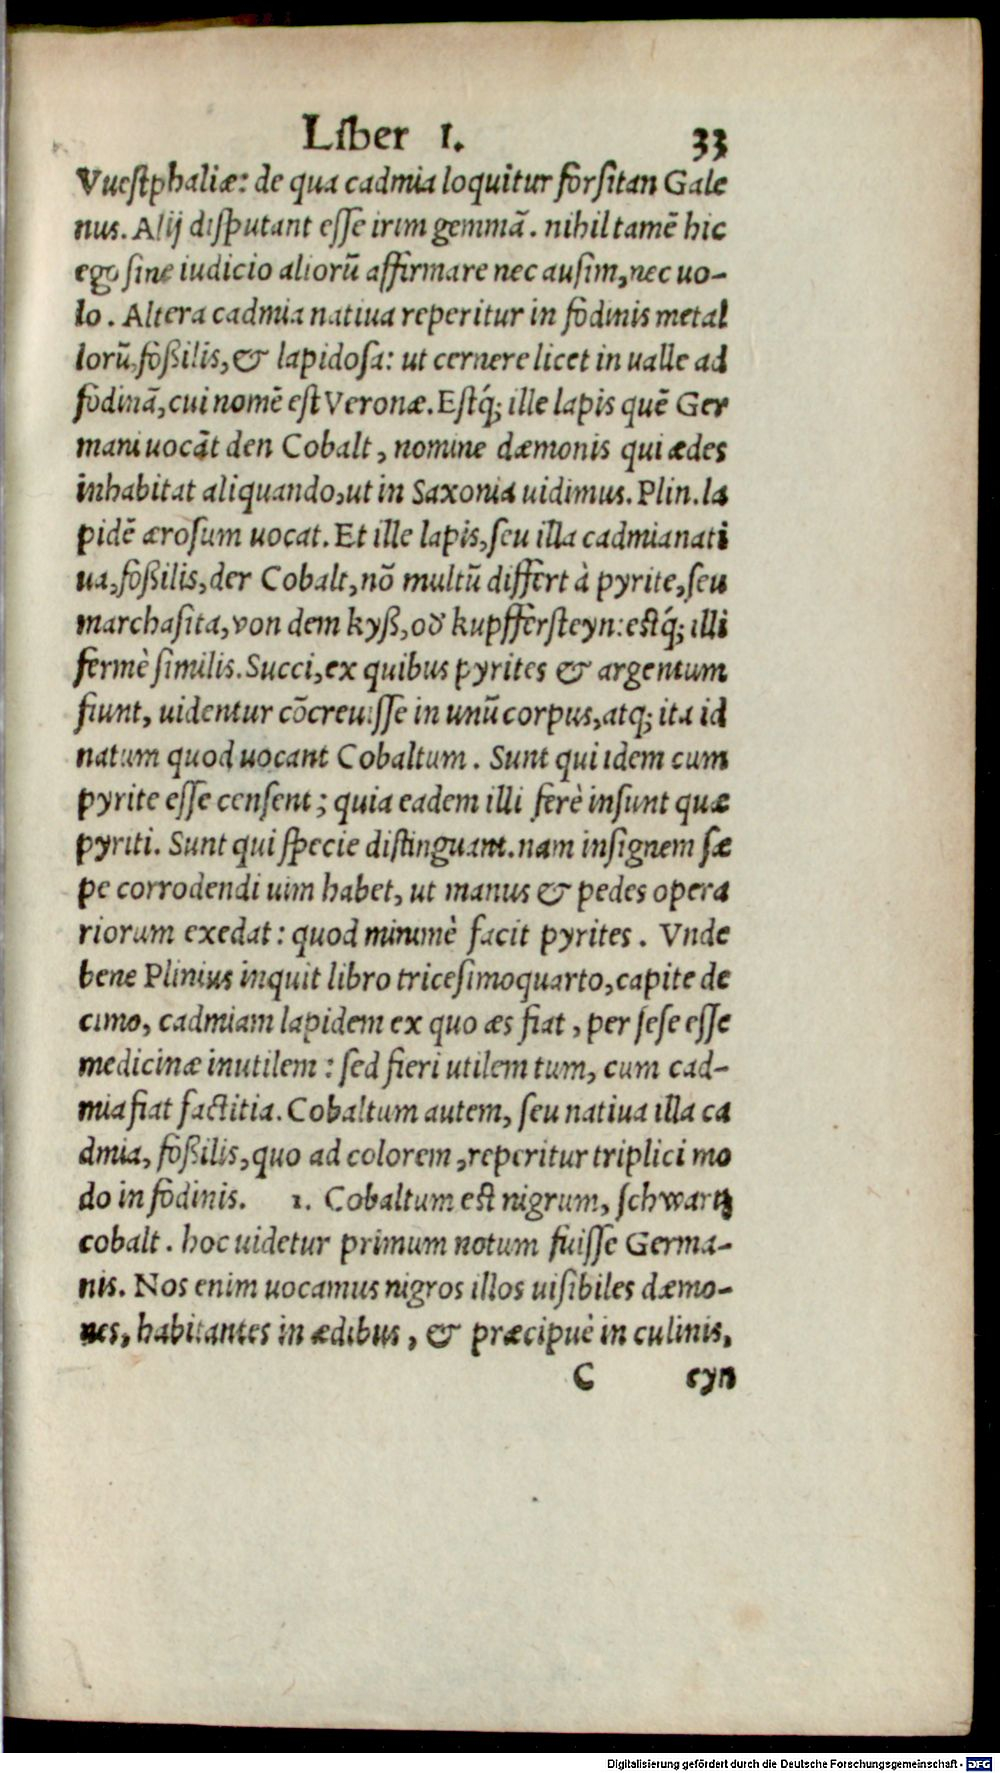 Liber 1. 33
Vuestphaliæ: de qua cadmia loquitur forsitan Gale
nus. Alij disputant esse irim gemmã. nihil tamẽ hic
ego sine iudicio aliorũ affirmare nec ausim, nec uo-
lo. Altera cadmia natiua reperitur in fodinis metal
lorũ, foßilis, & lapidosa: ut cernere licet in ualle ad
fodinã, cui nomẽ est Veronæ. Estq́; ille lapis quẽ Ger
mani uocãt den Cobalt, nomine dæmonis qui ædes
inhabitat aliquando, ut in Saxonia uidimus. Plin. la
pidẽ ærosum uocat. Et ille lapis, seu illa cadmia nati
ua, foßilis, der Cobalt, nõ multũ differt à pyrite, seu
marchasita, von dem kyß, oď kupffersteyn: estq́; illi
fermè similis. Succi, ex quibus pyrites & argentum
fiunt, uidentur cõcreuisse in unũ corpus, atq; ita id
natum quod uocant Cobaltum. Sunt qui idem cum
pyrite esse censent; quia eadem illi ferè insunt quæ
pyriti. Sunt qui specie distinguant. nam insignem sæ
pe corrodendi uim habet, ut manus & pedes opera
riorum exedat: quod minimè facit pyrites. Vnde
bene Plinius inquit libro tricesimoquarto, capite de
cimo, cadmiam lapidem ex quo æs fiat, per sese esse
medicinæ inutilem: sed fieri utilem tum, cum cad-
mia fiat factitia. Cobaltum autem, seu natiua illa ca
dmia, foßilis, quo ad colorem, reperitur triplici mo
do in fodinis. 1. Cobaltum est nigrum, schwartz
cobalt. hoc uidetur primum notum fuisse Germa-
nis. Nos enim uocamus nigros illos uisibiles dæmo-
nes, habitantes in ædibus, & præcipuè in culinis,
C eyn
Digitalisierung gefördert durch die Deutsche Forschungsgemeinschaft - DFG